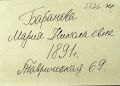 2226
Баранова
Мария Николаевна
1891 г.
Таврическая 69.